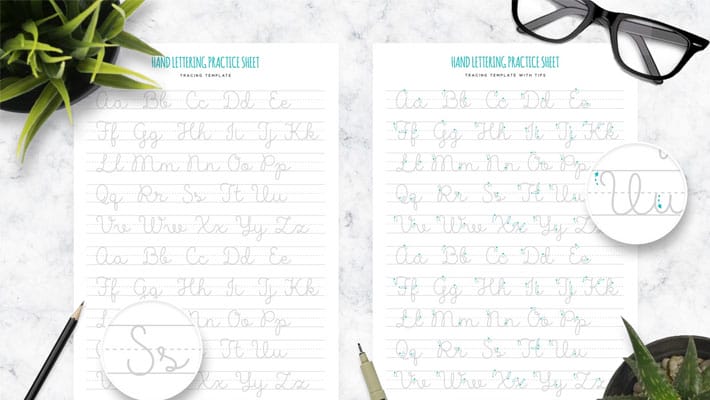 HAND LETTERING PRACTICE SHEET
TRACING TEMPLATE
Aa Bb Cc Dd Ee
Ff Gg Hh Ii Jj Kk
Ll Mm Nn Oo Pp
Qq Rr Ss Tt Uu
Vv Ww Xx Yy Zz
Aa Bb Cc Dd Ee
Ff Gg Hh Ii Jj Kk
Ll Oo Pp
Tt Uu
Yy Zz
Ss
HAND LETTERING PRACTICE SHEET
TRACING TEMPLATE WITH TIPS
Aa Bb Cc Dd Ee
Ff Gg Hh Ii Jj Kk
Ll Mm Nn Oo Pp
Qq Rr Ss Tt Uu
Vv Ww Xx Yy Zz
Aa Bb Cc Dd Ee
Ff Gg Hh Ii Jj Kk
Ll Mm Nn Oo Pp
Qq Rr Ss Tt Uu
Vv Ww Xx Yy Zz
Uu